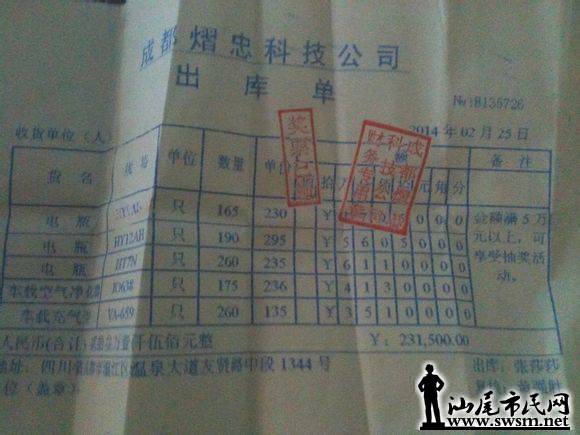 成都熠忠科技公司
出库单
No:8135726
收货单位（人）
2014年02月25日
货名 规格 单位 数量 单价 拾 万 元 角 分 备注
电瓶 只 165 230 0 0
电瓶 HY12AH 只 190 295 ¥ 5 6 0 5 0 0 0
电瓶 HT7N 只 260 235 ¥ 6 1 1 0 0 0 0
车载空气净化 JO638 只 175 236 ¥ 4 1 3 0 0 0 0
车载充气 VA-659 只 260 135 ¥ 3 5 1 0 0 0 0
金额满5万元以上，可享受抽奖活动。
奖票已
人民币(合计) 仟伍佰元整 ¥: 231,500.00
地址: 四川 温江区温泉大道友贤路中段1344号
出库: 张莎莎
单位（盖章）
汕尾市民网
www.swsm.net